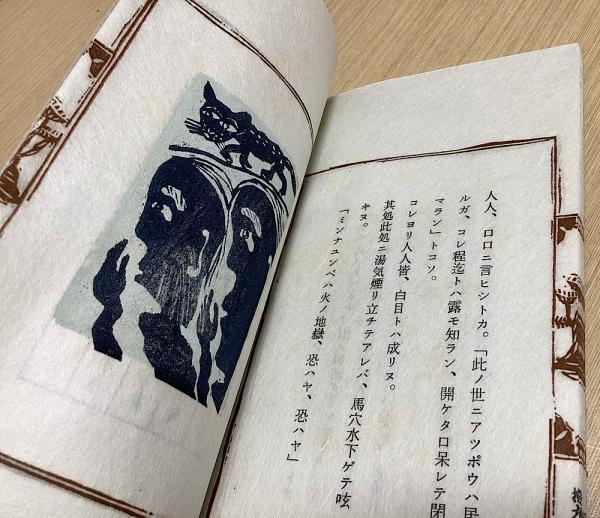 人人、口口ニ言ヒシトカ。「此ノ世ニアツポウハ居
ルガ、コレ程迄トハ露モ知ラン、開ケタ口呆レテ閉
マラン」トコソ。
コレヨリ人人皆、白目トハ成リヌ。
其処此処ニ湯気煙リ立チテアレバ、馬穴水下ゲテ呟
キヌ。
「ミンナユンベハ火ノ地獄、恐ハヤ、恐ハヤ」